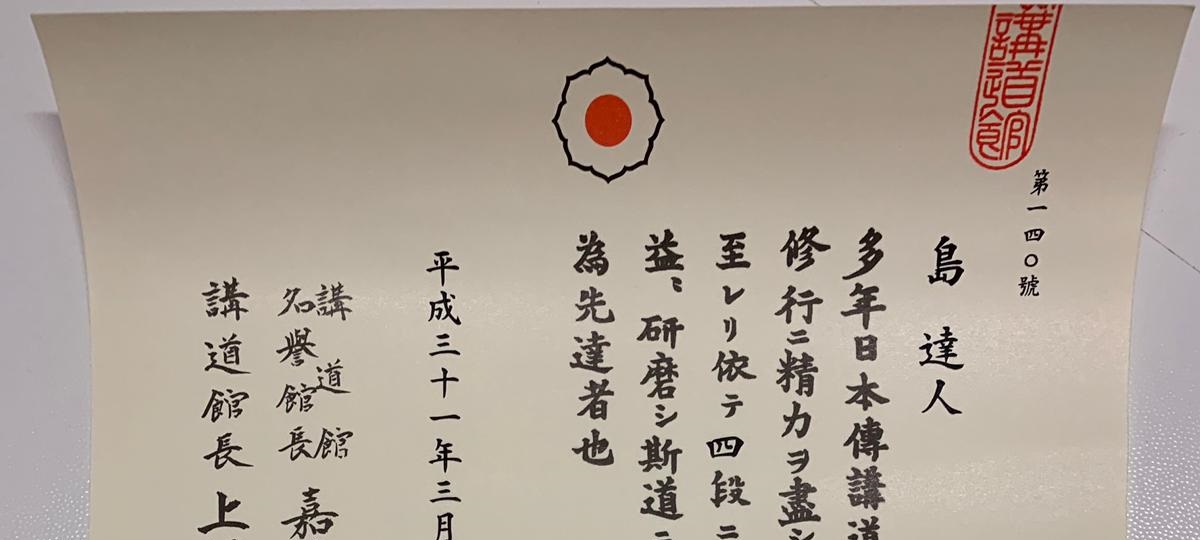 講道館
第一四〇號
島 達人
多年日本傳講道
修行ニ精力ヲ盡シ
至レリ依テ四段ニ
益〻研磨シ斯道ニ
為先達者也
平成三十一年三月
講道館
名誉館長 嘉
講道館長 上